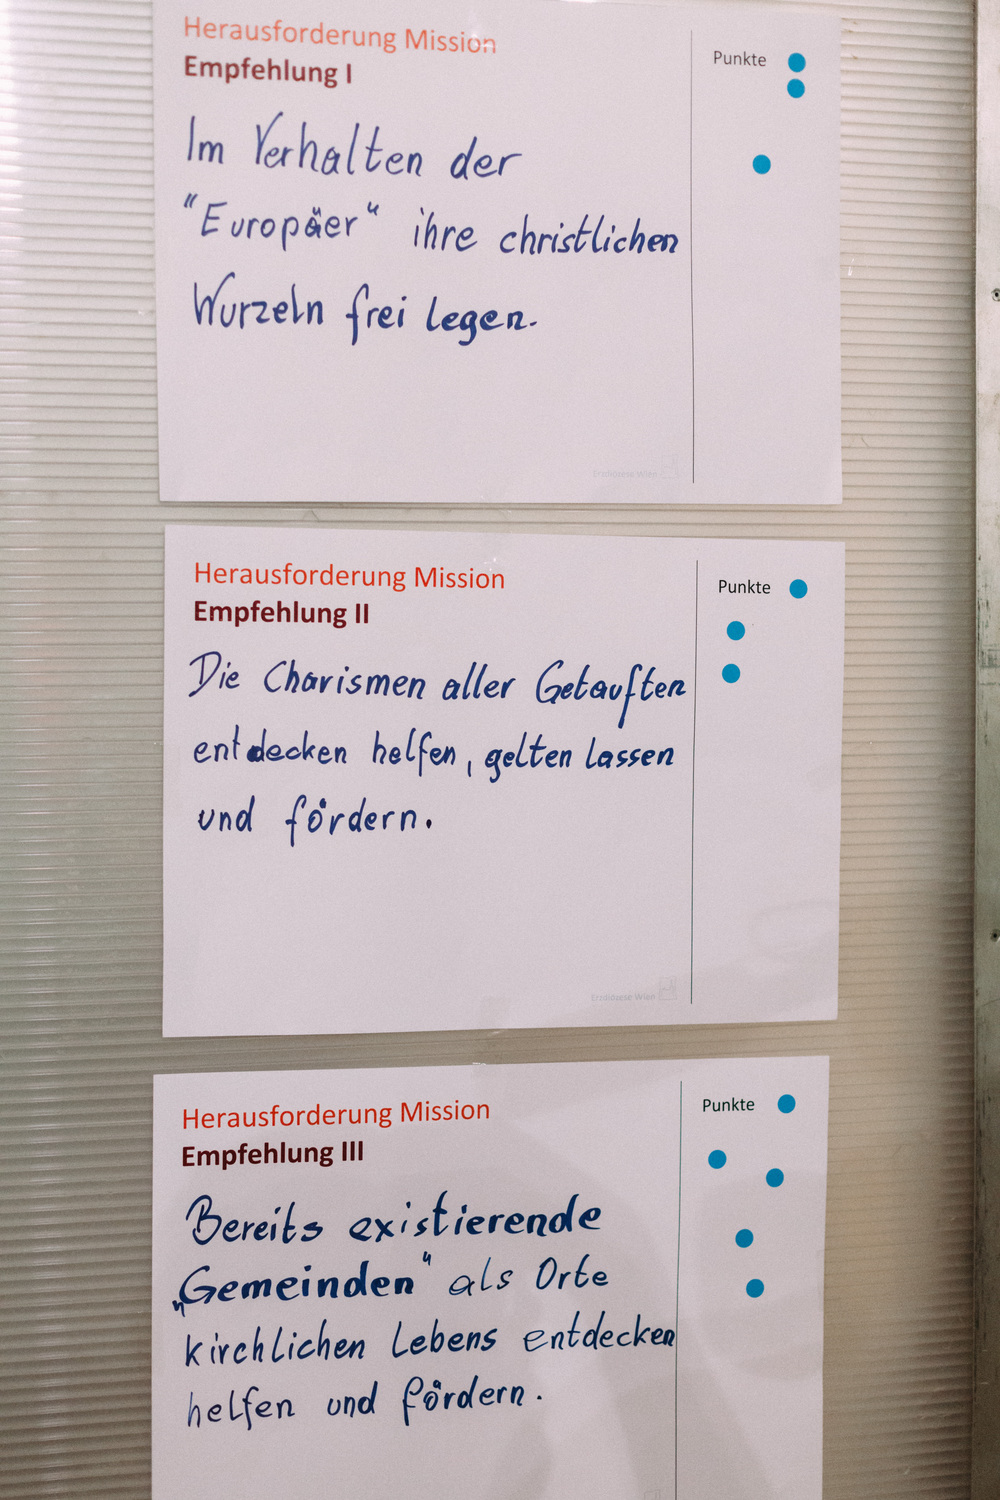 Herausforderung Mission
Empfehlung I
Punkte
Im Verhalten der
"Europäer" ihre christlichen
Wurzeln frei legen.
Erzdiözese Wien
Herausforderung Mission
Empfehlung II
Punkte
Die Charismen aller Getauften
entdecken helfen, gelten lassen
und fördern.
Erzdiözese Wien
Herausforderung Mission
Empfehlung III
Punkte
Bereits existierende
„Gemeinden" als Orte
kirchlichen Lebens entdecken
helfen und fördern.